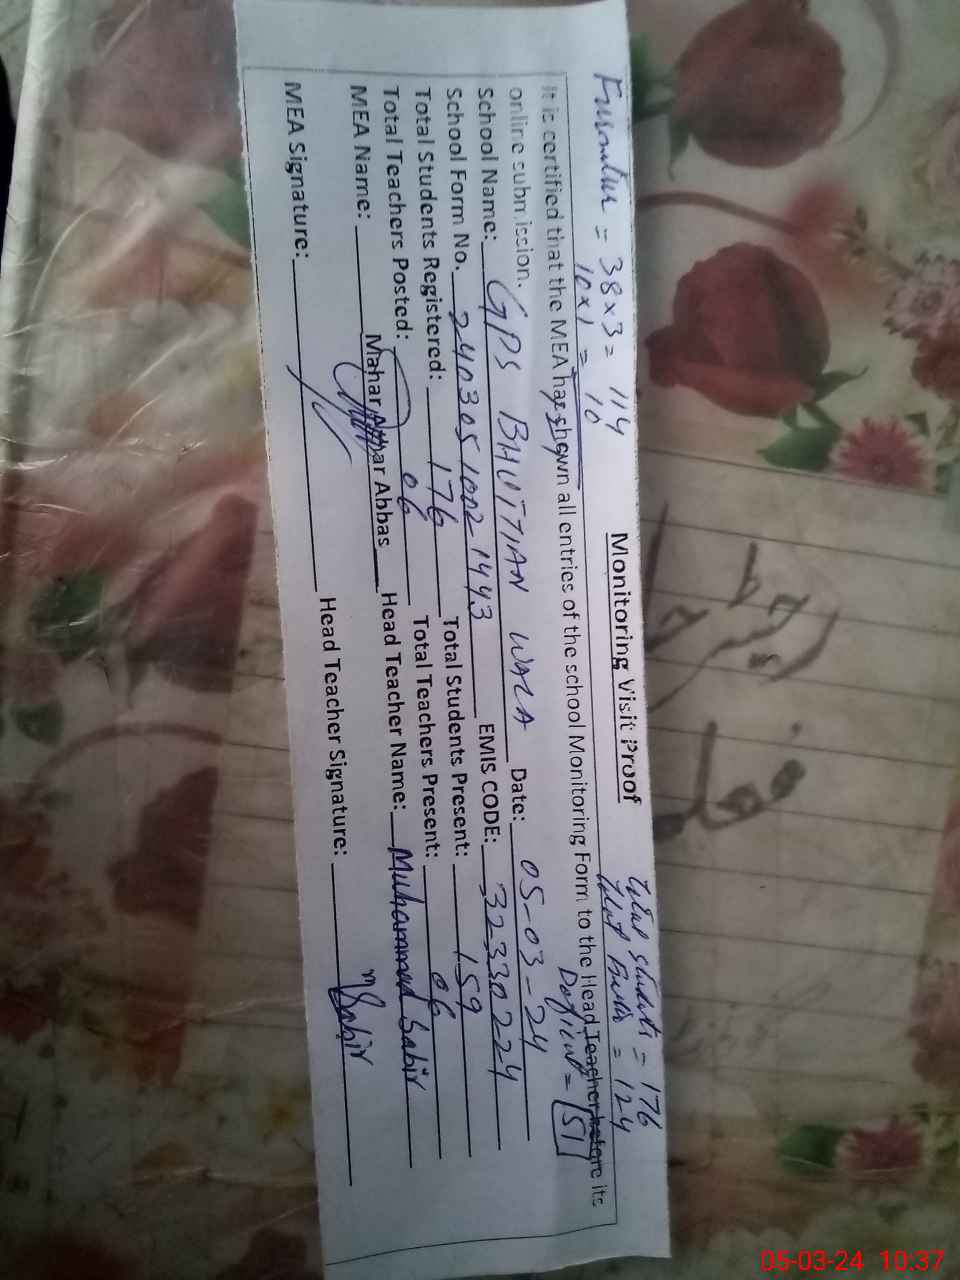 Monitoring Visit Proof
Total students = 176
= 124
Furniture = 38 x 3 = 114
10 x 1 = 10
Deficient = 51
It is certified that the MEA has shown all entries of the school Monitoring Form to the Head Teacher before its
online submission.
School Name: GPS BHUTIAN WALA Date: 05-03-24
School Form No. 2403051002-1443 EMIS CODE: 32330224
Total Students Registered: 176 Total Students Present: 159
Total Teachers Posted: 06 Total Teachers Present: 06
MEA Name: Mahar Athar Abbas Head Teacher Name: Muhammad Sabir
MEA Signature: Head Teacher Signature: MSabir
05-03-24 10:37